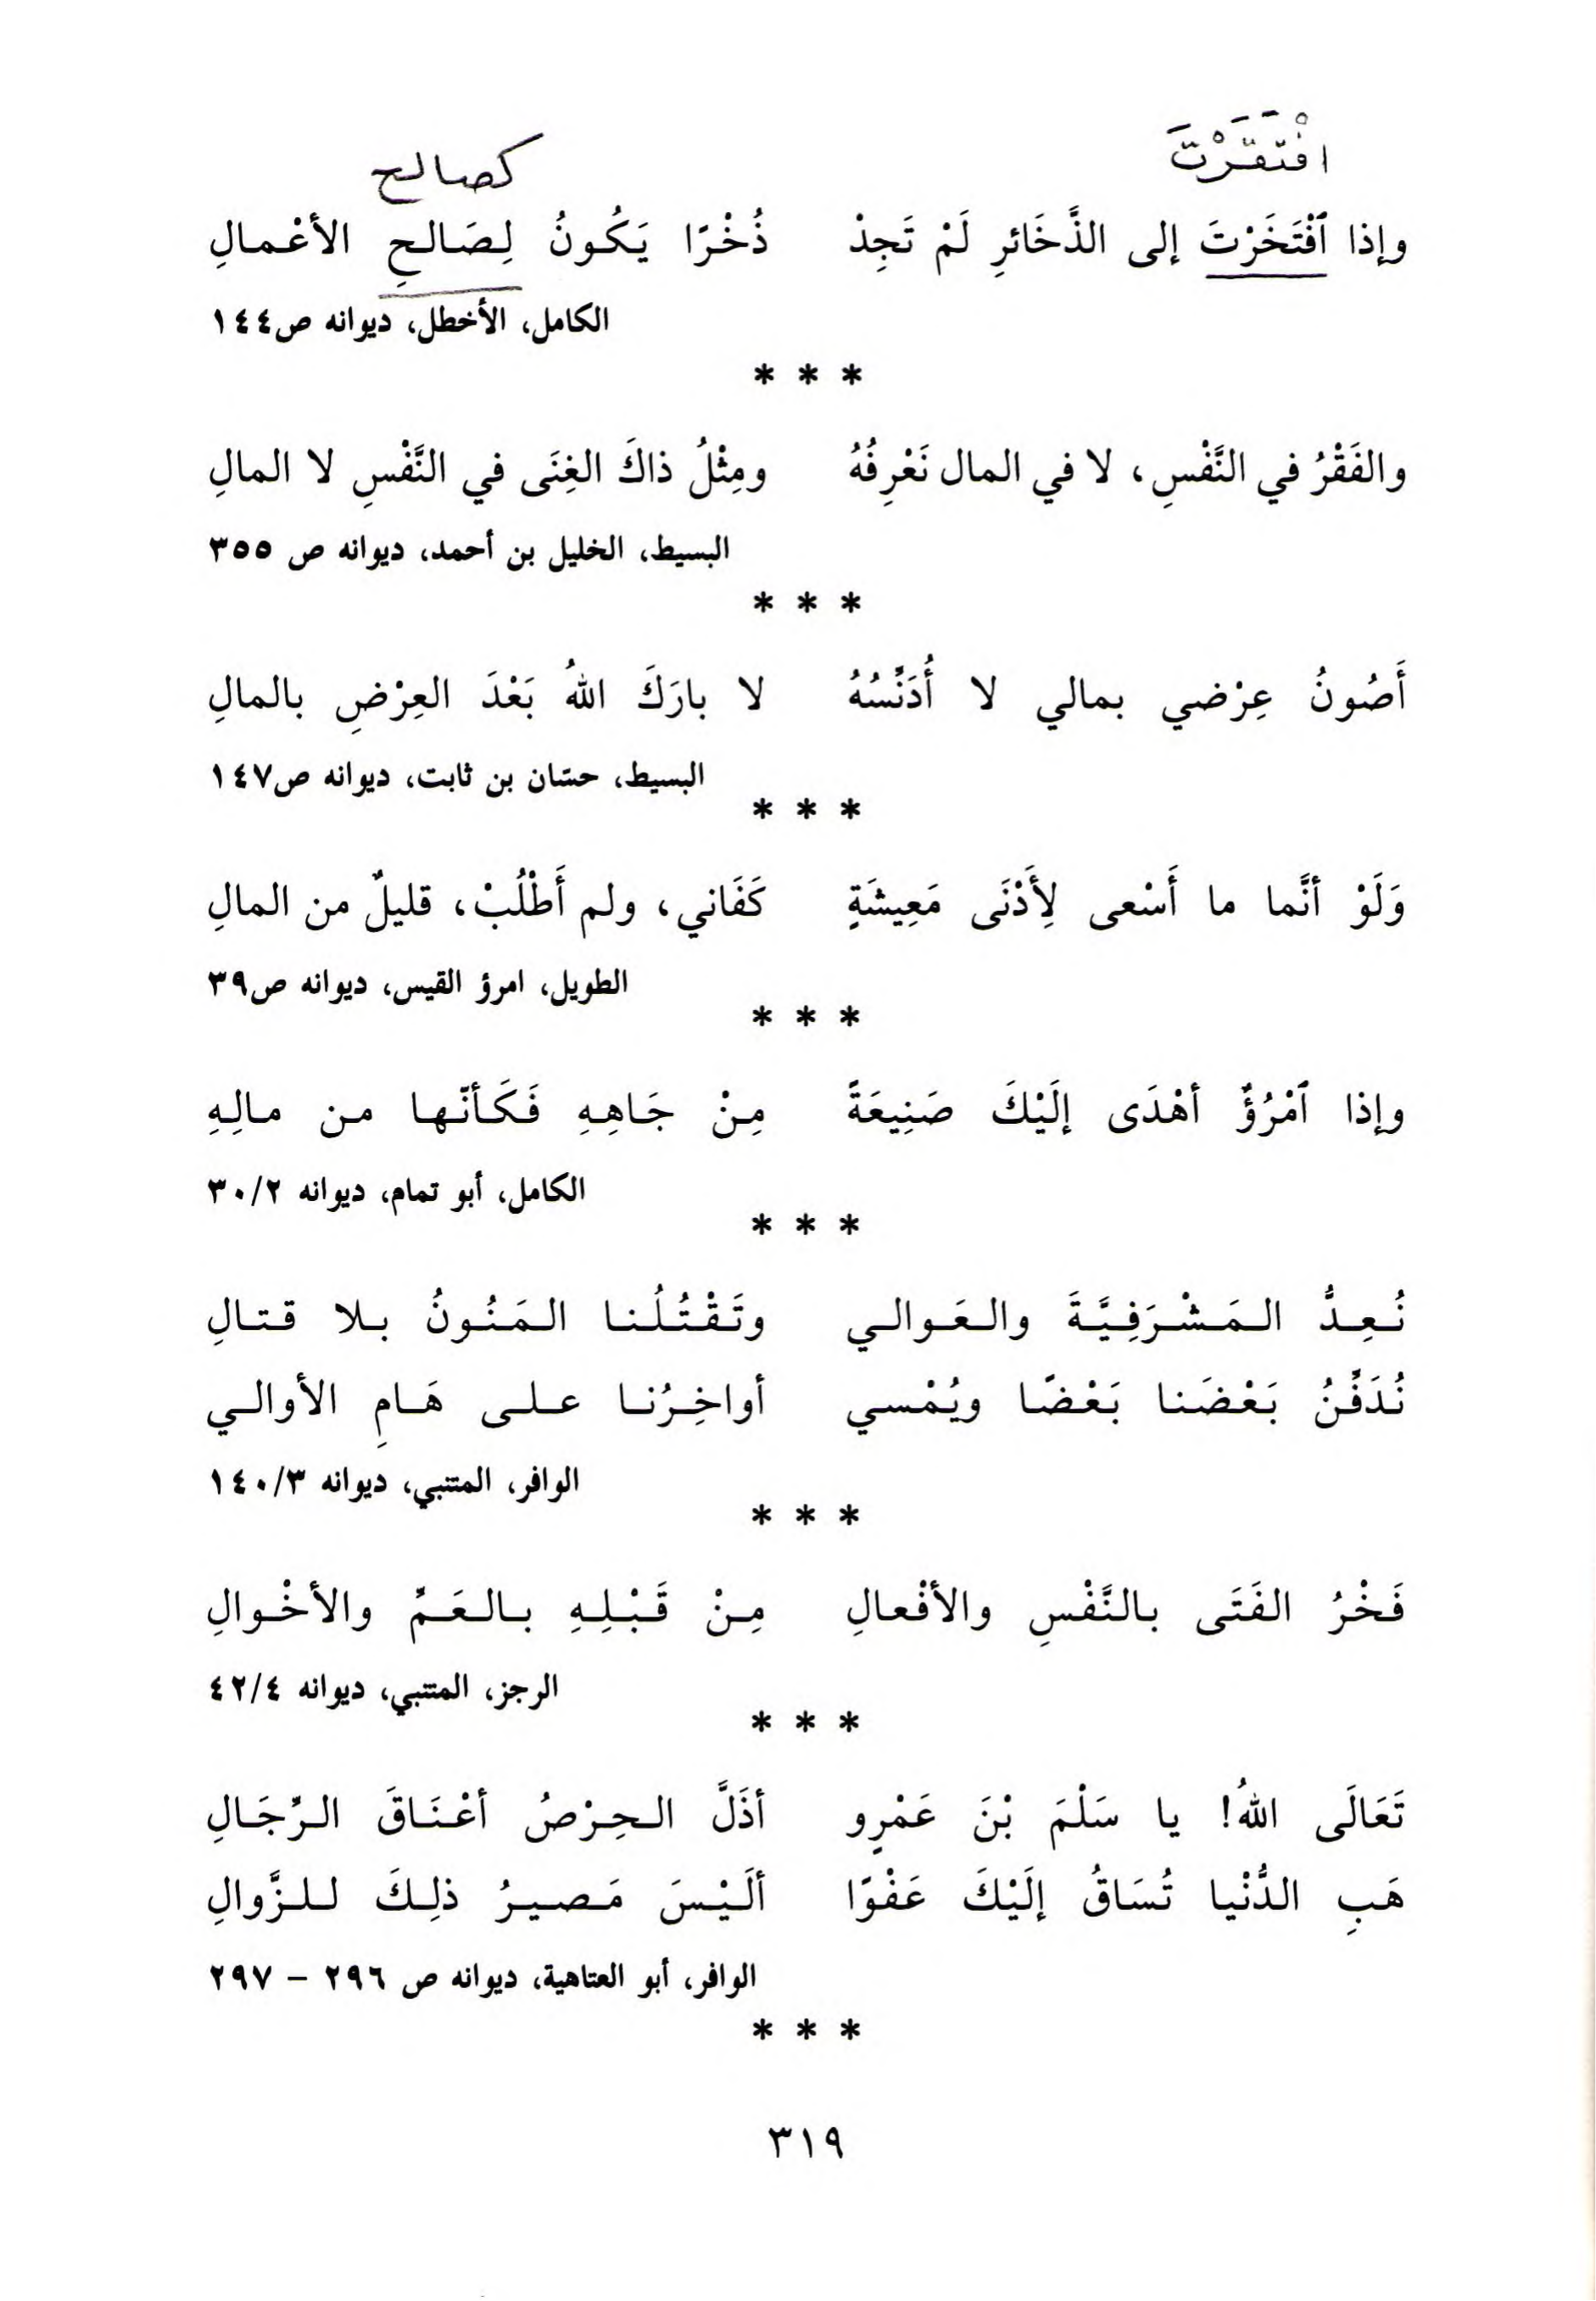 افْتَقَرْتَ كصالح
وإذا ٱفْتَخَرْتَ إلى الذَّخَائرِ لَمْ تَجِدْ ذُخْرًا يَكُونُ لِصَالحِ الأعْمالِ
الكامل، الأخطل، ديوانه ص١٤٤
* * *
والفَقْرُ في النَّفْسِ، لا في المال نَعْرِفُهُ ومِثْلُ ذاكَ الغِنَى في النَّفْسِ لا المالِ
البسيط، الخليل بن أحمد، ديوانه ص ٣٥٥
* * *
أَصُونُ عِرْضي بمالي لا أُدَنِّسُهُ لا بارَكَ اللهُ بَعْدَ العِرْضِ بالمالِ
البسيط، حسّان بن ثابت، ديوانه ص١٤٧
* * *
وَلَوْ أنَّما ما أَسْعى لِأَدْنَى مَعِيشَةٍ كَفَاني، ولم أَطْلُبْ، قليلٌ من المالِ
الطويل، امرؤ القيس، ديوانه ص٣٩
* * *
وإذا ٱمْرُؤٌ أهْدَى إلَيْكَ صَنِيعَةً مِنْ جَاهِهِ فَكَأنّها من مالِهِ
الكامل، أبو تمام، ديوانه ٣٠/٢
* * *
نُعِدُّ المَشْرَفِيَّةَ والعَوالي وتَقْتُلُنا المَنُونُ بلا قتالِ
نُدَفِّنُ بَعْضَنا بَعْضًا ويُمْسي أواخِرُنا على هَامِ الأوالي
الوافر، المتنبي، ديوانه ١٤٠/٣
* * *
فَخْرُ الفَتَى بالنَّفْسِ والأفْعالِ مِنْ قَبْلِهِ بالعَمِّ والأخْوالِ
الرجز، المتنبي، ديوانه ٤٢/٤
* * *
تَعَالَى اللهُ! يا سَلْمَ بْنَ عَمْرٍو أذَلَّ الحِرْصُ أعْنَاقَ الرِّجَالِ
هَبِ الدُّنْيا تُسَاقُ إلَيْكَ عَفْوًا ألَيْسَ مَصيرُ ذلِكَ للزَّوالِ
الوافر، أبو العتاهية، ديوانه ص ٢٩٦ – ٢٩٧
* * *
٣١٩